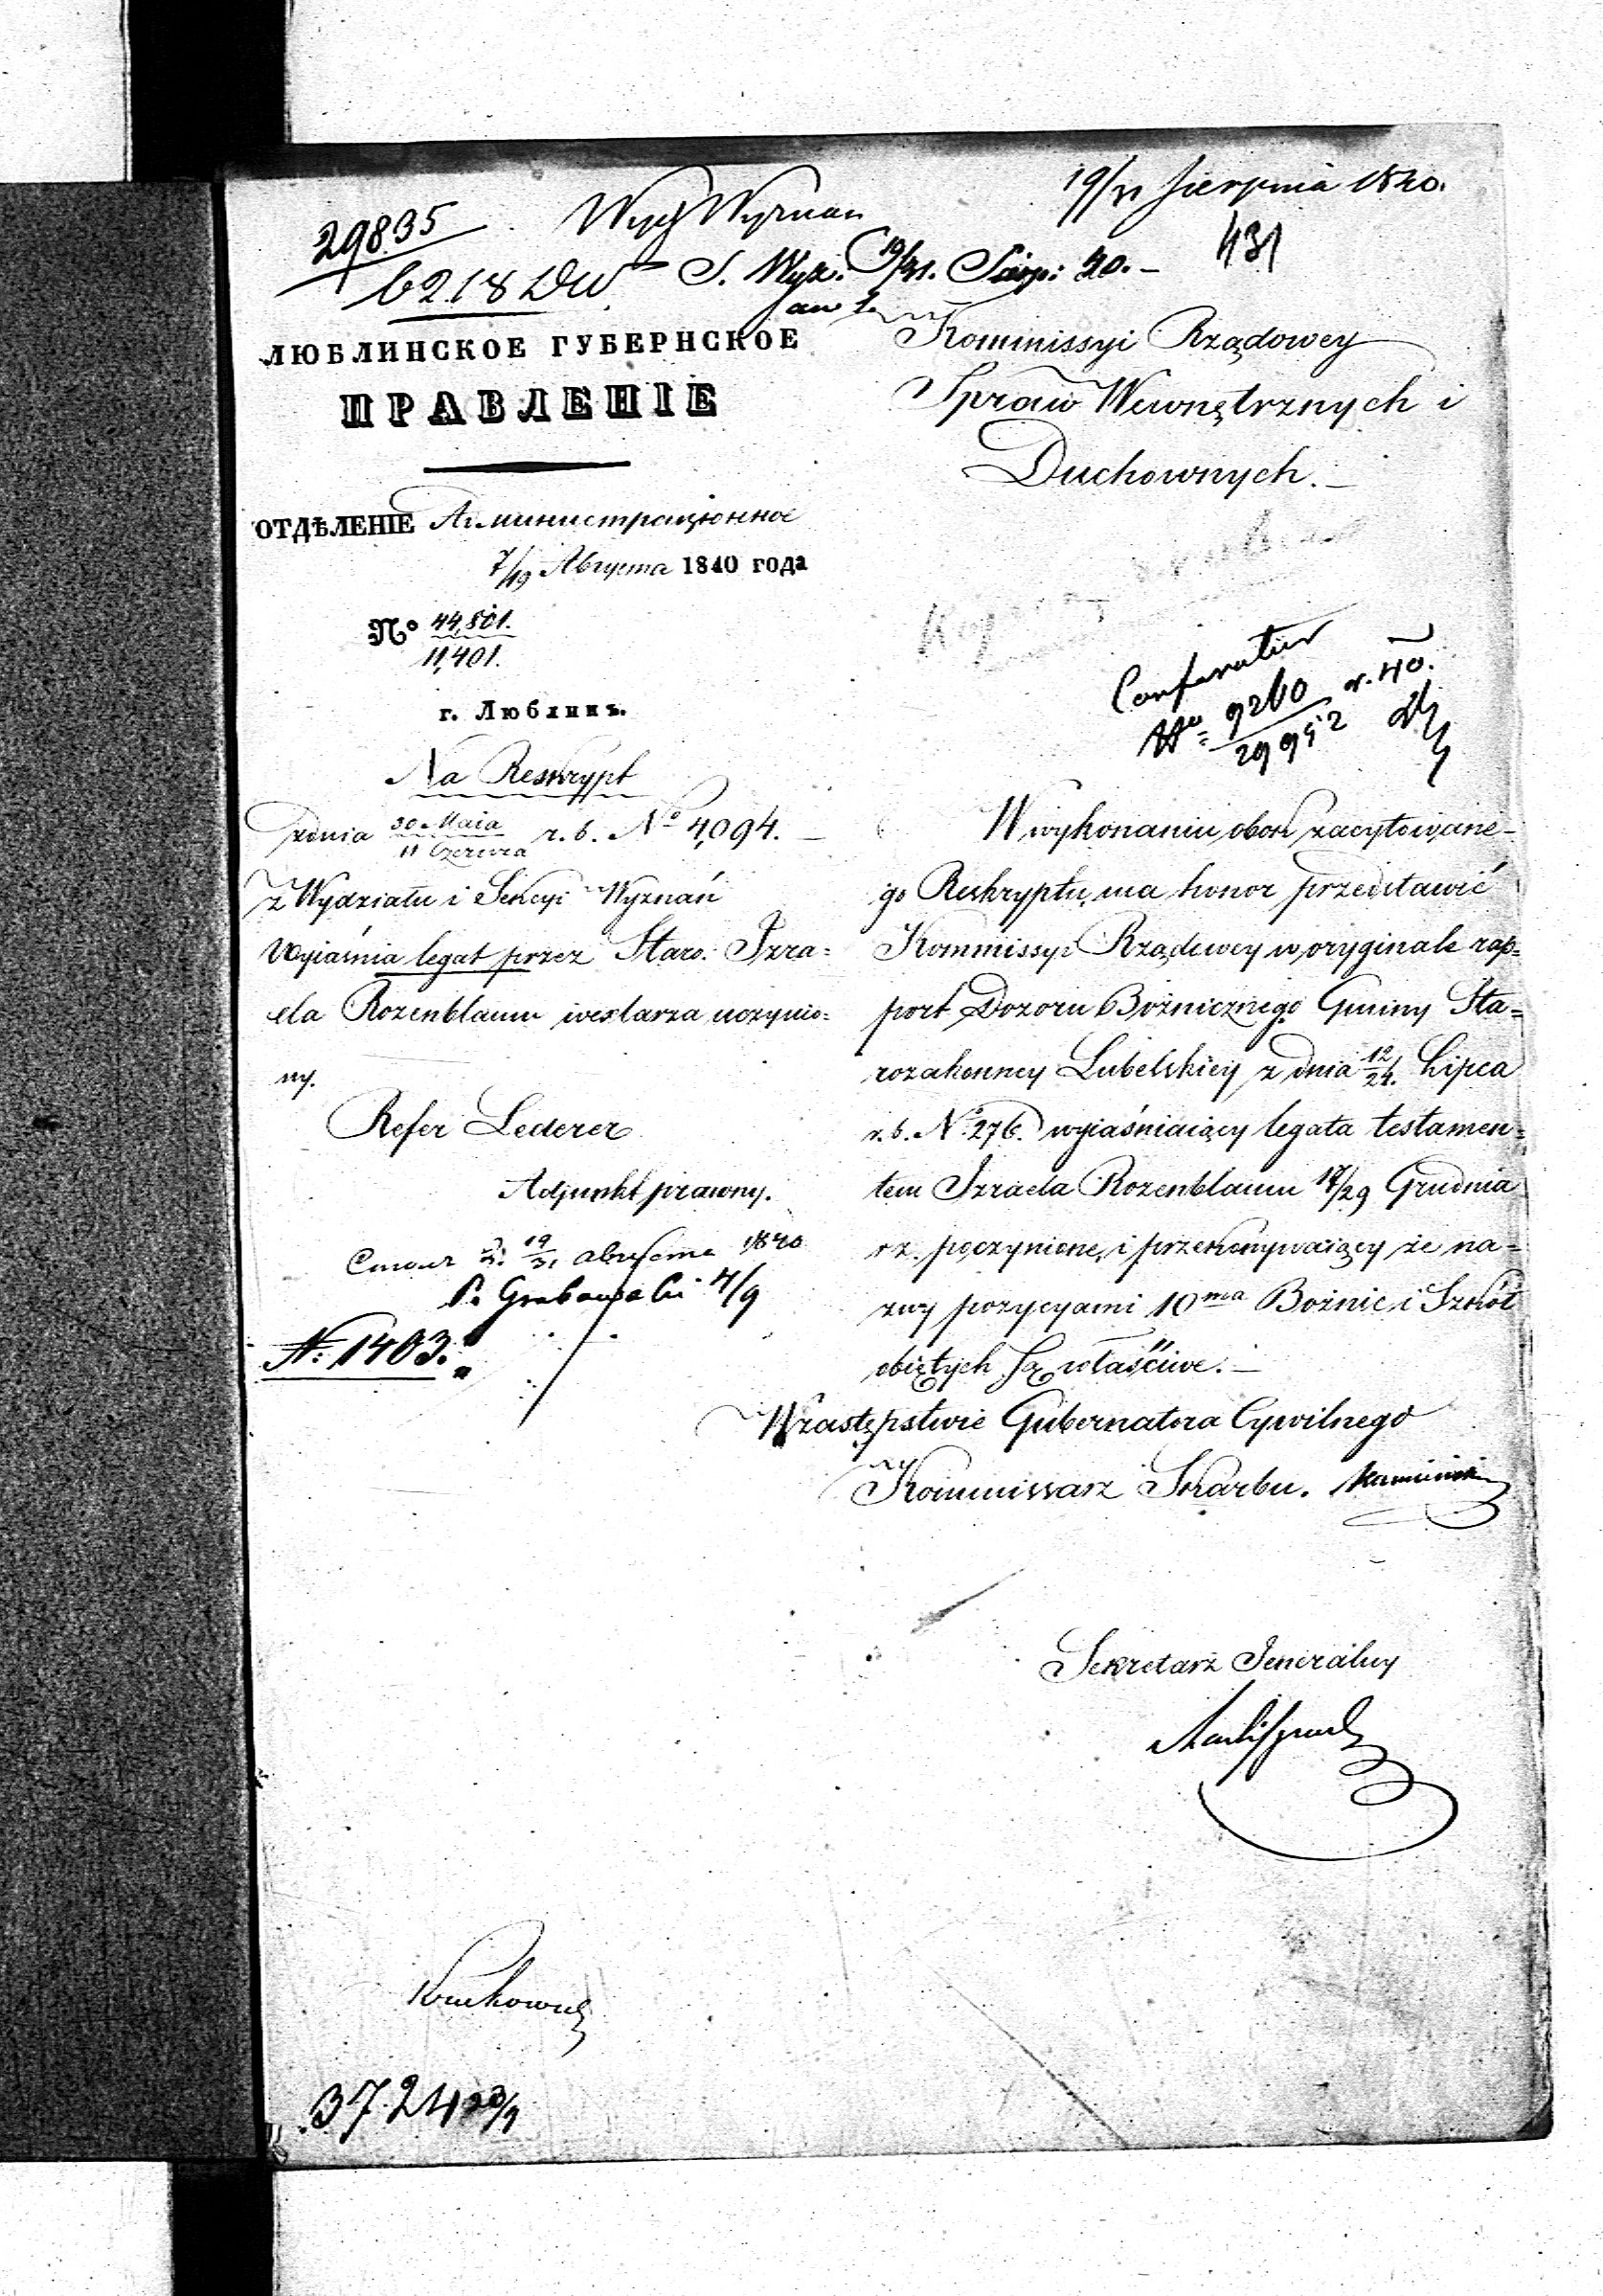 19/31 Sierpnia 1840.
29835
Wyd Wyznań
431
6218 DW
S. Wyz. 19/31. Sierp: 40. –
ЛЮБЛИНСКОЕ ГУБЕРНСКОЕ
ПРАВЛЕНІЕ
ОТДѢЛЕНІЕ Административное
7/19 Августа 1840 года
№ 44,801.
11,401.
г. Люблинъ.
Na Reskrypt
z dnia 30 Maia / 11 Czerwca r. b. No 4,094. –
z Wydziału i Sekcyi Wyznań
Wyiaśnia legat przez Staro: Izra=
ela Rozenblaum wexlarza uczynio=
ny.
Refer Lederer
Adjunkt prawny.
19/31 1840
P. Grabowski 4/9
N: 1403.
Kommissyi Rządowey
Spraw Wewnętrznych i
Duchownych. –
Conferatur
No 9260 r. 40.
29952
W wykonaniu obok zacytowane-
go Reskryptu, ma honor przedstawić
Kommissyi Rządowey w oryginale rap=
port Dozoru Bożnicznego Gminy Sta=
rozakonney Lubelskiey z dnia 12/24. Lipca
r. b. No 276. wyiaśniaiący legata testamen=
tem Izraela Rozenblaum 17/29 Grudnia
r z. poczynione, i przekonywaiący że na=
zwy pozycyami 10ma Bożnic i Szkół
obiętych są właściwe. –
W zastępstwie Gubernatora Cywilnego
Kommissarz Skarbu. Kamiński
Sekretarz Jeneralny
3724 20/9